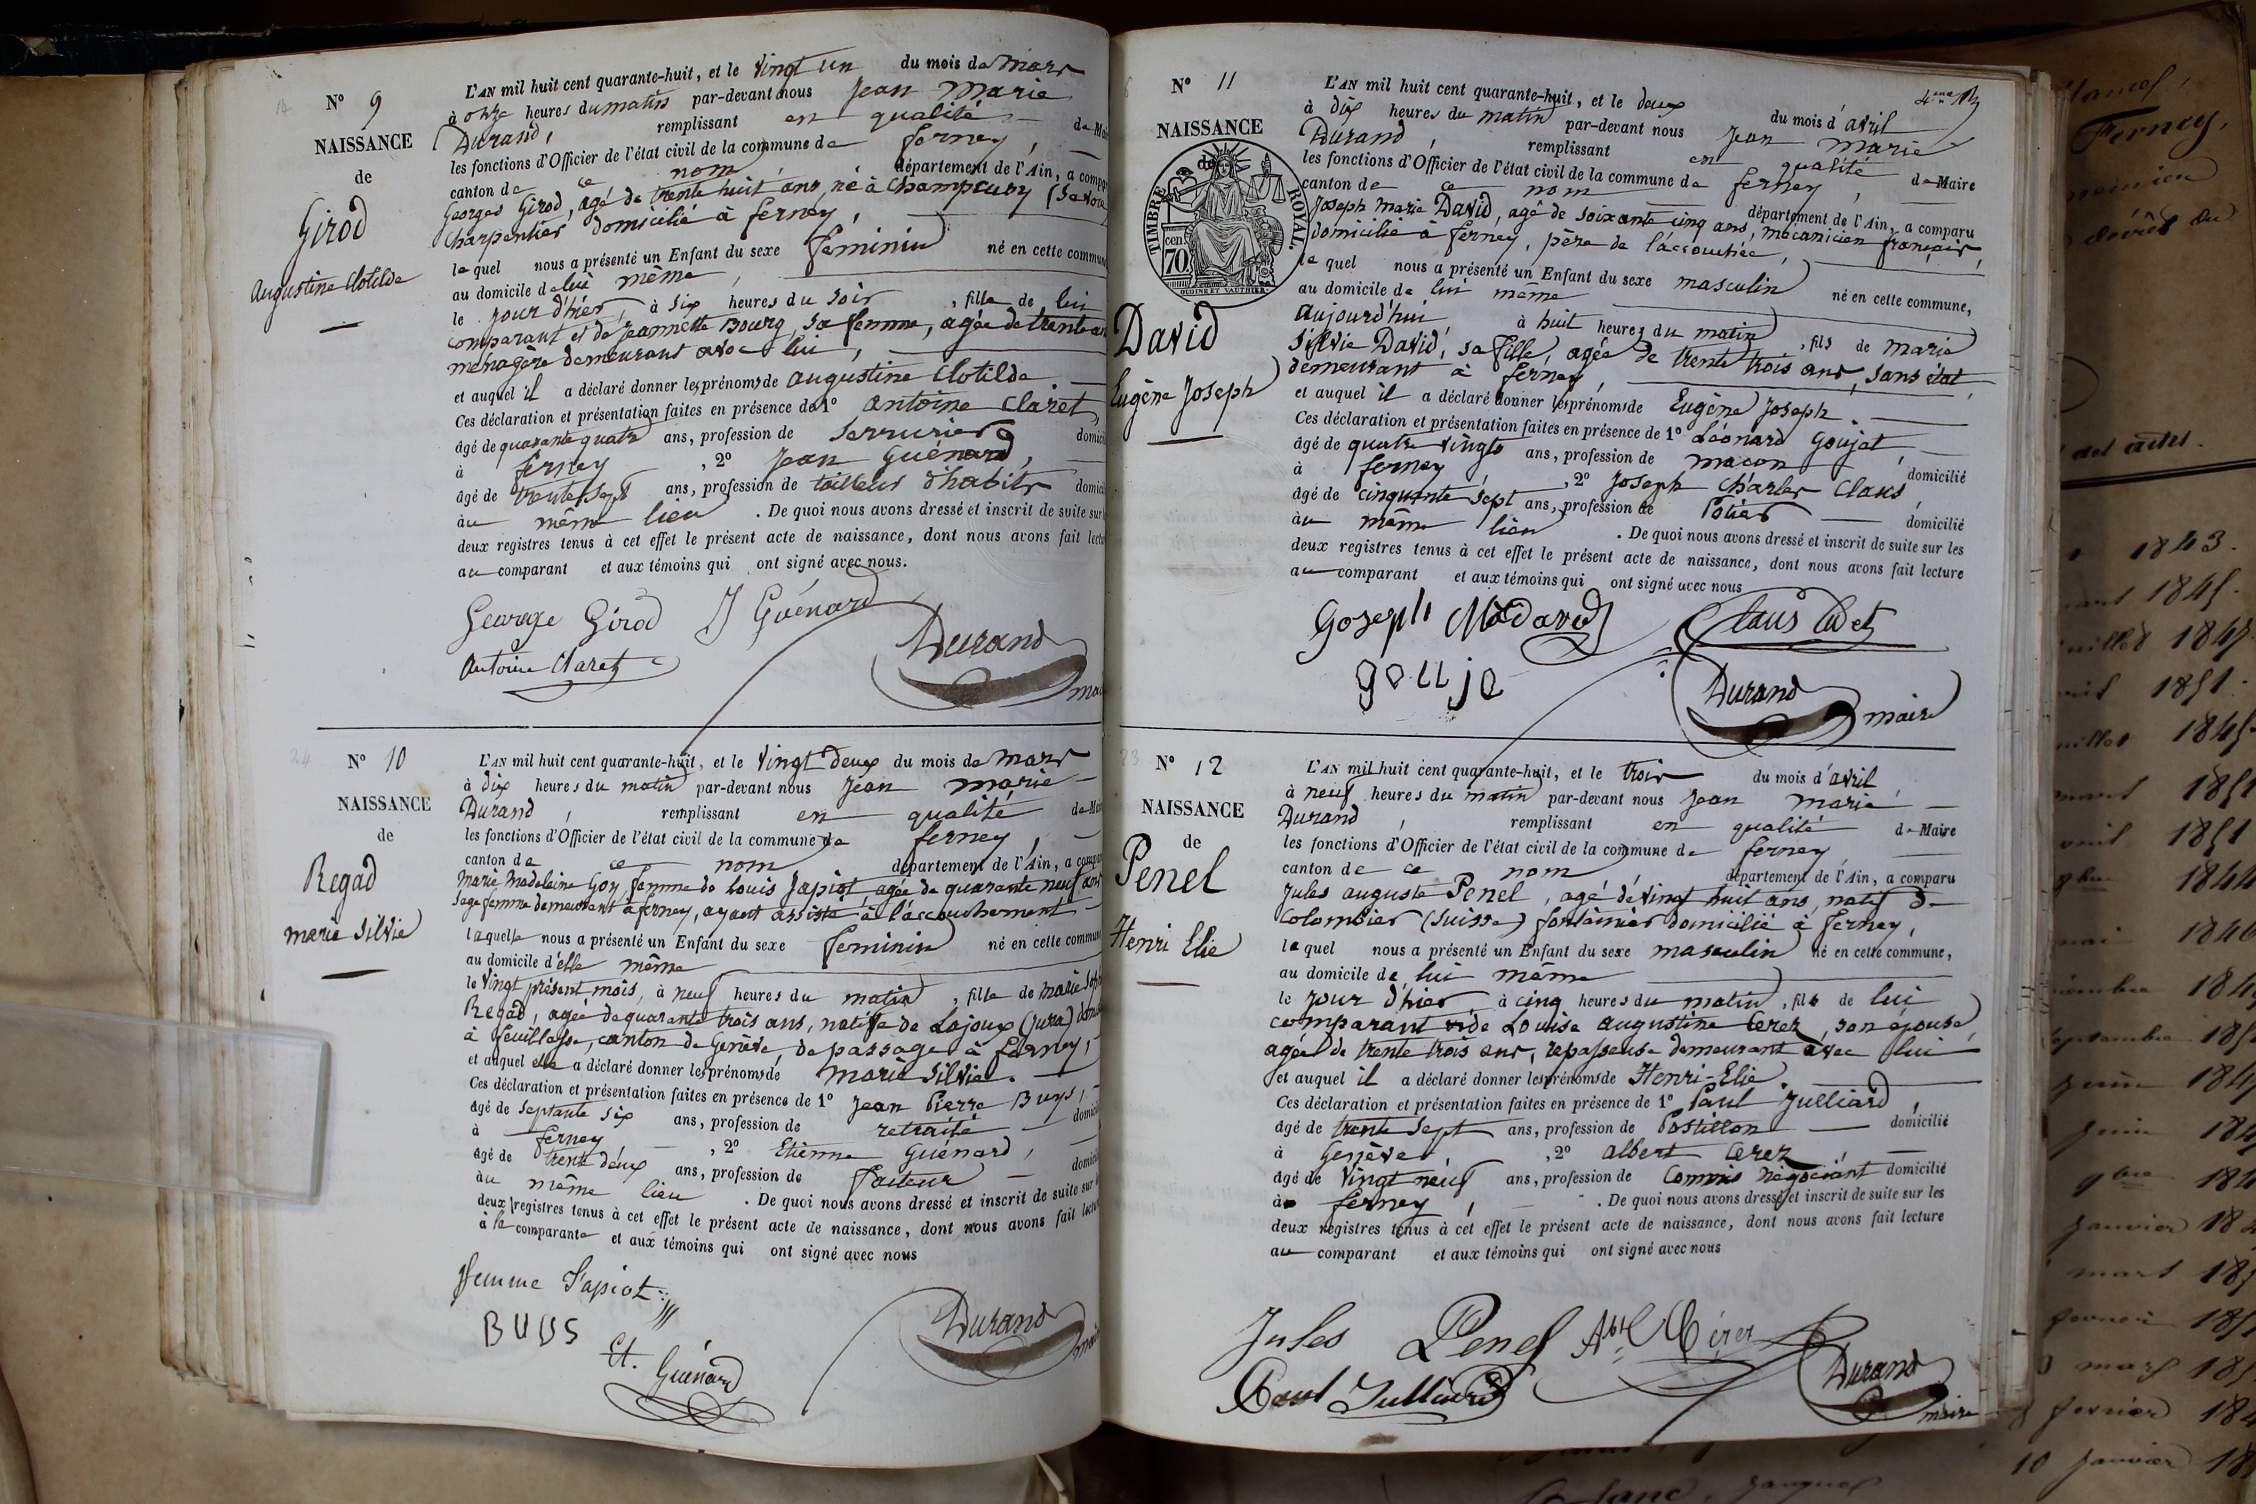 N° 9
NAISSANCE
de
Girod
Augustine Clotilde
L'AN mil huit cent quarante-huit, et le vingt un du mois de mars
à onze heures du matin par-devant nous Jean Marie
Durand, remplissant en qualité de Mai
les fonctions d'Officier de l'état civil de la commune de ferney,
canton de ce nom département de l'Ain, a compa
Georges Girod, agé de trente huit ans, né à (Savoie
charpentier domicilié à ferney,
lequel nous a présenté un Enfant du sexe feminin né en cette commun
au domicile de lui même,
le jour d'hier, à six heures du soir, fille de lui
comparant et de Jeannette Bourg, sa femme, agée de trente an
menagère demeurant avec lui,
et auquel il a déclaré donner les prénoms de augustine Clotilde.
Ces déclaration et présentation faites en présence de 1° antoine Claret,
âgé de quarante quatre ans, profession de serrurier domici
à ferney, 2° Jean Guénard,
âgé de trente sept ans, profession de tailleur d'habits domici
au même lieu. De quoi nous avons dressé et inscrit de suite sur
deux registres tenus à cet effet le présent acte de naissance, dont nous avons fait lectu
au comparant et aux témoins qui ont signé avec nous.
George Girod J Guénard
Antoine Claret Durand
N° 10
NAISSANCE
de
Regad
marie Silvie
L'AN mil huit cent quarante-huit, et le vingt deux du mois de mars
à dix heures du matin par-devant nous Jean marie
Durand, remplissant en qualité de Mai
les fonctions d'Officier de l'état civil de la commune de ferney,
canton de ce nom département de l'Ain, a compa
marie Madeleine Goy, femme de Louis Japiot, agée de quarante neuf ans
Sage femme demeurant à ferney, ayant assisté à l'accouchement
laquelle nous a présenté un Enfant du sexe feminin né en cette commun
au domicile d'elle même
le vingt présent mois, à neuf heures du matin, fille de marie
Regad, agée de quarante trois ans, native de Lajoux (jura)
à feuillasse, canton de Genève, de passage à ferney,
et auquel elle a déclaré donner les prénoms de marie Silvie.
Ces déclaration et présentation faites en présence de 1° Jean Pierre Buys,
âgé de septante six ans, profession de retraité domici
à ferney, 2° Etienne Guénard,
âgé de trente deux ans, profession de facteur domici
au même lieu. De quoi nous avons dressé et inscrit de suite sur
deux registres tenus à cet effet le présent acte de naissance, dont nous avons fait lectu
à la comparante et aux témoins qui ont signé avec nous
femme Japiot
BUYS
Et. Guénard
Durand
N° 11
NAISSANCE
de
TIMBRE ROYAL.
cen 70
David
Eugène Joseph
L'AN mil huit cent quarante-huit, et le deux du mois d'avril
à dix heures du matin par-devant nous Jean marie
Durand, remplissant en qualité de Maire
les fonctions d'Officier de l'état civil de la commune de ferney,
canton de ce nom département de l'Ain, a comparu
Joseph Marie David, agé de soixante cinq ans, mécanicien français,
domicilié à ferney, père de l'accouchée,
lequel nous a présenté un Enfant du sexe masculin né en cette commune,
au domicile de lui même
aujourd'hui à huit heures du matin, fils de marie
Silvie David, sa fille, agée de trente trois ans, sans état
demeurant à ferney,
et auquel il a déclaré donner les prénoms de Eugène Joseph.
Ces déclaration et présentation faites en présence de 1° Léonard Goujat,
âgé de quatre vingts ans, profession de maçon domicilié
à ferney, 2° Joseph Charles Claus,
âgé de cinquante sept ans, profession de Potier domicilié
au même lieu. De quoi nous avons dressé et inscrit de suite sur les
deux registres tenus à cet effet le présent acte de naissance, dont nous avons fait lecture
au comparant et aux témoins qui ont signé avec nous
Durand maire
N° 12
NAISSANCE
de
Penel
Henri Elie
L'AN mil huit cent quarante-huit, et le trois du mois d'avril
à neuf heures du matin par-devant nous Jean marie
Durand, remplissant en qualité de Maire
les fonctions d'Officier de l'état civil de la commune de ferney
canton de ce nom département de l'Ain, a comparu
Jules auguste Penel, agé de vingt huit ans, natif de
Colombier (Suisse) fontainier domicilié à ferney,
lequel nous a présenté un Enfant du sexe masculin né en cette commune,
au domicile de lui même
le jour d'hier à cinq heures du matin, fils de lui
comparant et de Louise augustine Cerez, son épouse,
agée de trente trois ans, repasseuse demeurant avec lui
et auquel il a déclaré donner les prénoms de Henri-Elie.
Ces déclaration et présentation faites en présence de 1° Paul Julliard,
âgé de trente sept ans, profession de Postillon domicilié
à Genève, 2° albert Cerez
âgé de vingt neuf ans, profession de Commis négociant domicilié
à ferney,. De quoi nous avons dressé et inscrit de suite sur les
deux registres tenus à cet effet le présent acte de naissance, dont nous avons fait lecture
au comparant et aux témoins qui ont signé avec nous
Jules Penel
Paul Julliard Durand
maire
Ferney,
1843.
1845.
1851
1851
1844
1846
janvier
mars
10 janvier